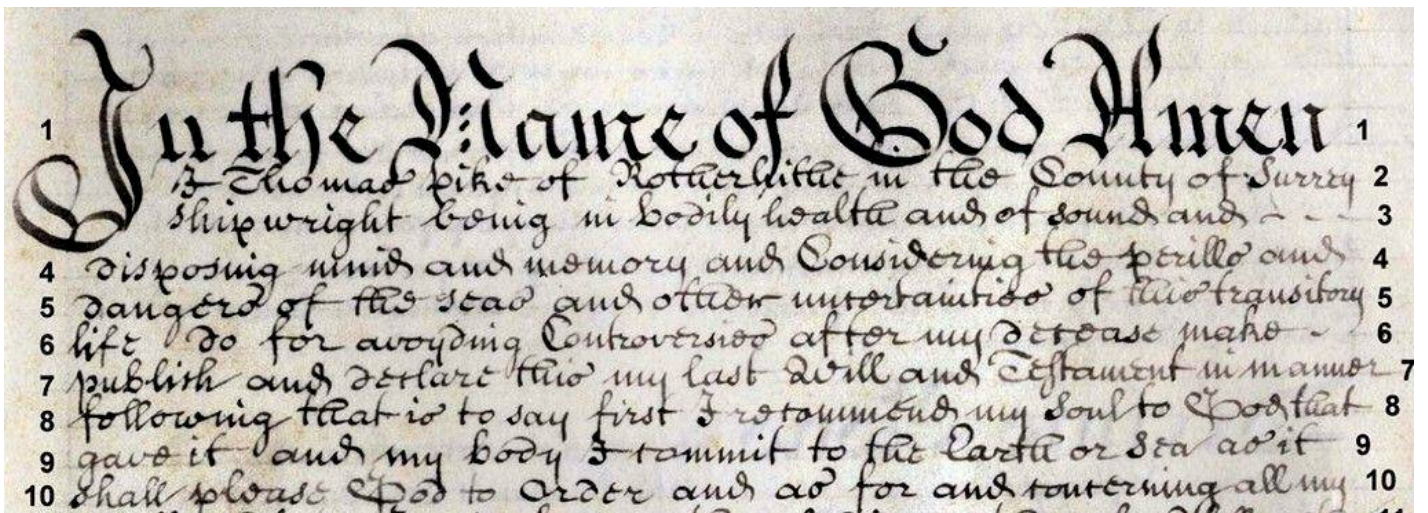 1 In the Name of God Amen 1
I Thomas Pike of Rotherhithe in the County of Surrey 2
Shipwright being in bodily health and of sound and - - - 3
4 disposing mind and memory and Considering the perills and 4
5 dangers of the seas and other uncertainties of this transitory 5
6 life Do for avoyding Controversies after my decease make - 6
7 publish and declare this my last Will and Testament in manner 7
8 following that is to say first I recommend my Soul to God that 8
9 gave it and my body I commit to the Earth or Sea as it 9
10 shall please God to Order and as for and concerning all my 10